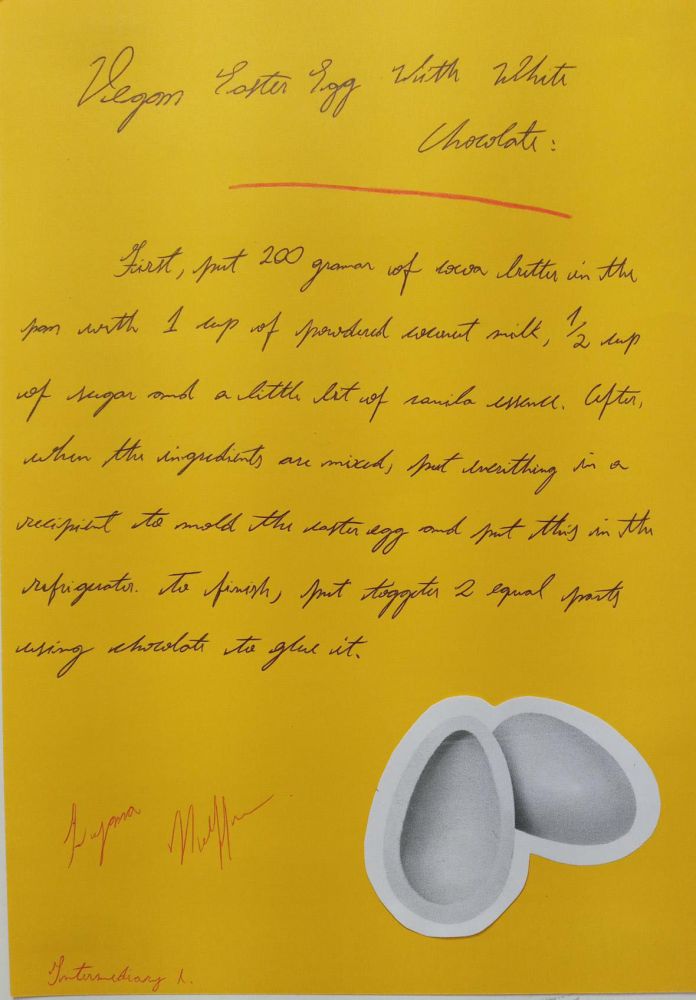 Vegan Easter Egg With White
Chocolate:
First, put 200 gramas of cocoa butter in the
pan with 1 cup of powdered coconut milk, 1/2 cup
of sugar and a little bit of vanila essence. After,
when the ingredients are mixed, put everithing in a
recipient to mold the easter egg and put this in the
refrigerator. To finish, put toggeter 2 equal parts
using chocolate to glue it.
Intermediary 1.